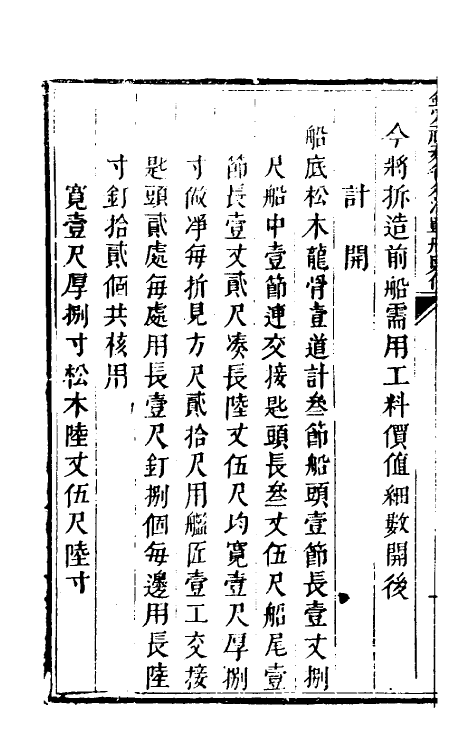 今將拆造前船需用工料價值細數開後
計開
船底松木龍骨壹道計叁節船頭壹節長壹丈捌
尺船中壹節連交接匙頭長叁丈伍尺船尾壹
節長壹丈貳尺凑長陸丈伍尺均寬壹尺厚捌
寸做凈每折見方尺貳拾尺用艌匠壹工交接
匙頭貳處每處用長壹尺釘捌個每邊用長陸
寸釘拾貳個共核用
寬壹尺厚捌寸松木陸丈伍尺陸寸